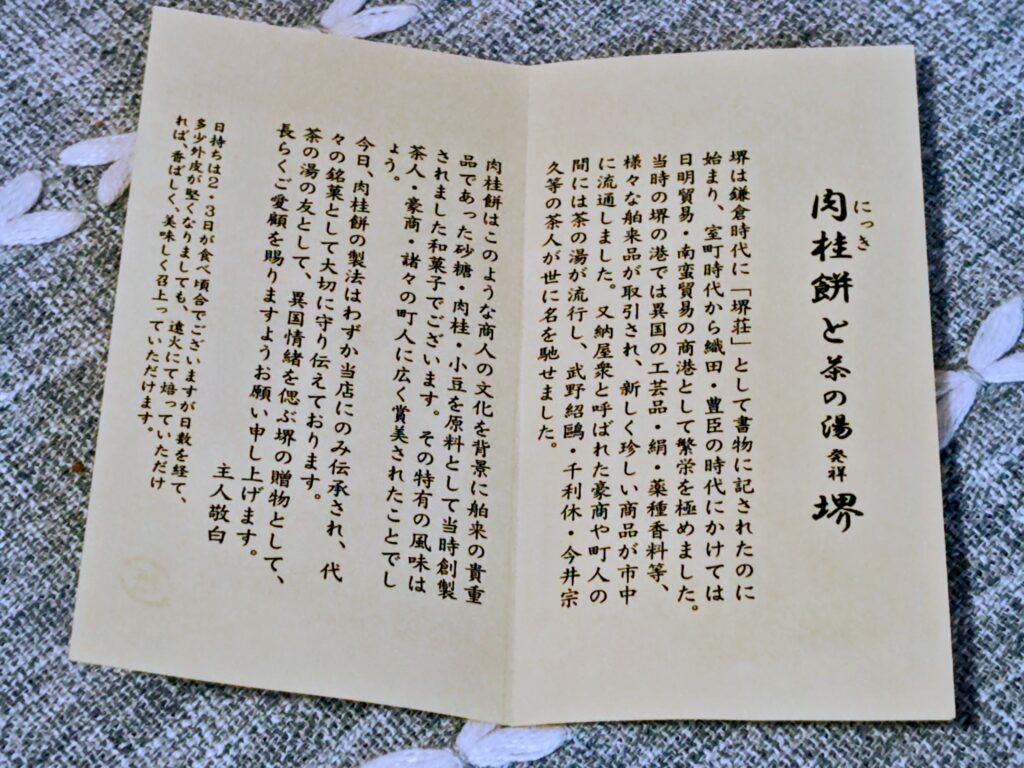 にっき
肉桂餅と茶の湯発祥堺
堺は鎌倉時代に「堺荘」として書物に記されたのに
始まり、室町時代から織田・豊臣の時代にかけては
日明貿易・南蛮貿易の商港として繁栄を極めました。
当時の堺の港では異国の工芸品・絹・薬種香料等、
様々な舶来品が取引され、新しく珍しい商品が市中
に流通しました。又納屋衆と呼ばれた豪商や町人の
間には茶の湯が流行し、武野紹鴎・千利休・今井宗
久等の茶人が世に名を馳せました。
肉桂餅はこのような商人の文化を背景に舶来の貴重
品であった砂糖・肉桂・小豆を原料として当時創製
されました和菓子でございます。その特有の風味は
茶人・豪商・諸々の町人に広く賞美されたことでし
ょう。
今日、肉桂餅の製法はわずか当店にのみ伝承され、代
々の銘菓として大切に守り伝えております。
茶の湯の友として、異国情緒を偲ぶ堺の贈物として、
長らくご愛顧を賜りますようお願い申し上げます。
主人敬白
日持ちは2・3日が食べ頃合でございますが日数を経て、
多少外皮が堅くなりましても、遠火にて焙っていただけ
れば、香ばしく、美味しく召上っていただけます。